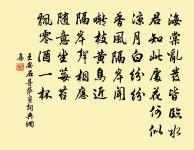 海棠亂發皆臨水
君知此處花何似
涼月白紛紛
香風隔岸聞
囀枝黃鳥近
隔岸聲相應
隨意坐莓苔
飄零酒一杯
王安石菩薩蠻詞典網
集